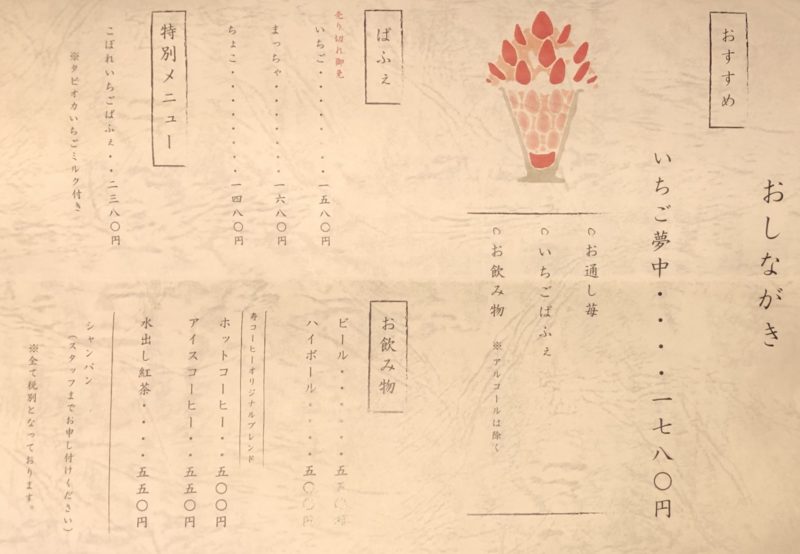 おしながき
おすすめ
いちご夢中・・・・一七八〇円
お通し苺
いちごぱふぇ
お飲み物 ※アルコールは除く
ぱふぇ
売り切れ御免
いちご・・・・・・・一五八〇円
まっちゃ・・・・・・一六八〇円
ちょこ・・・・・・・一四八〇円
特別メニュー
こぼれいちごぱふぇ・・二三八〇円
※タピオカいちごミルク付き
お飲み物
ビール・・・・・・五五〇円
ハイボール・・・・五〇〇円
寿コーヒーオリジナルブレンド
ホットコーヒー・・五〇〇円
アイスコーヒー・・五五〇円
水出し紅茶・・・・五五〇円
シャンパン
(スタッフまでお申し付けください)
※全て税別となっております。